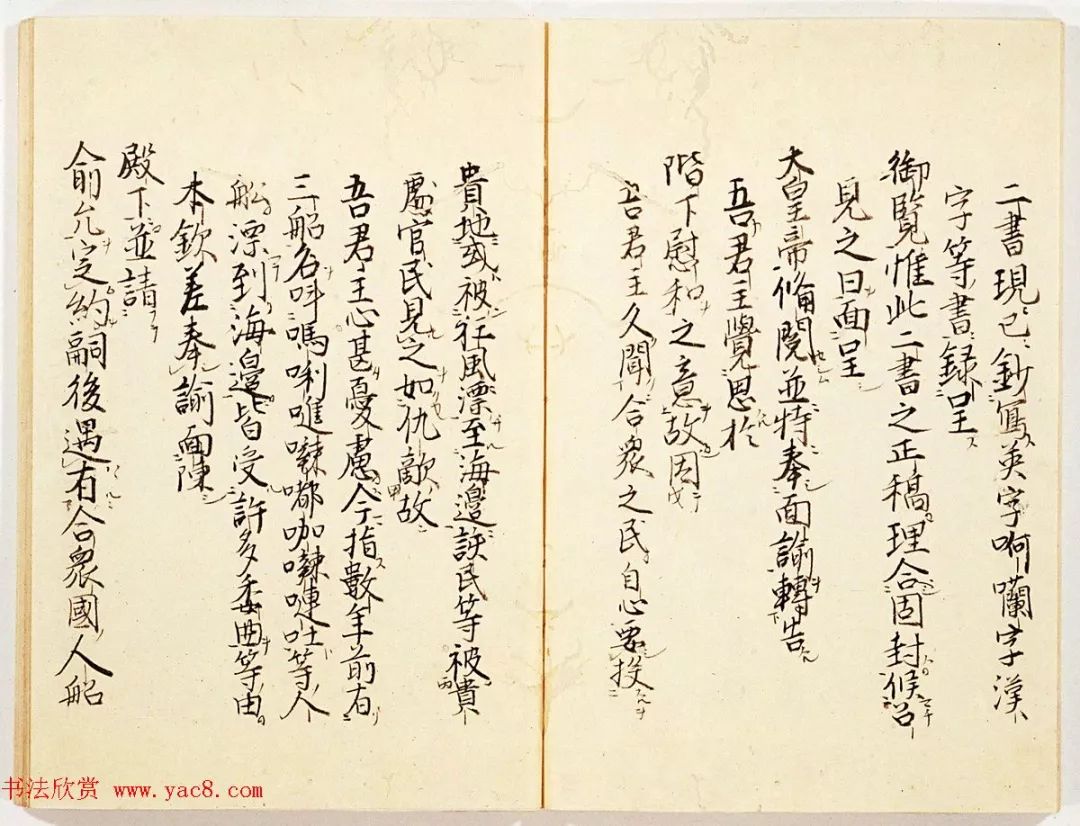 二書現已鈔寫英字啊嘴字漢
字等書録呈
御覽惟此二書之正稿理合固封候召
見之日面呈
大皇帝脩閱並特奉面諭轉告
吾君主覺思於
階下慰和之意故因
吾君主久聞合衆之民自心要投
貴地或被狂風漂至海邊該民等被貴
處官民見之如仇敵故
吾君主心甚憂慮今指數年前有
三船名呌嗎唎嗺㘑嘟咖㘑嗹吐等人
船漂到海邊皆受許多委曲等由
本欽差奉諭面陳
殿下並請
俞允定約嗣後遇有合衆國人船
书法欣赏 www.yac8.com